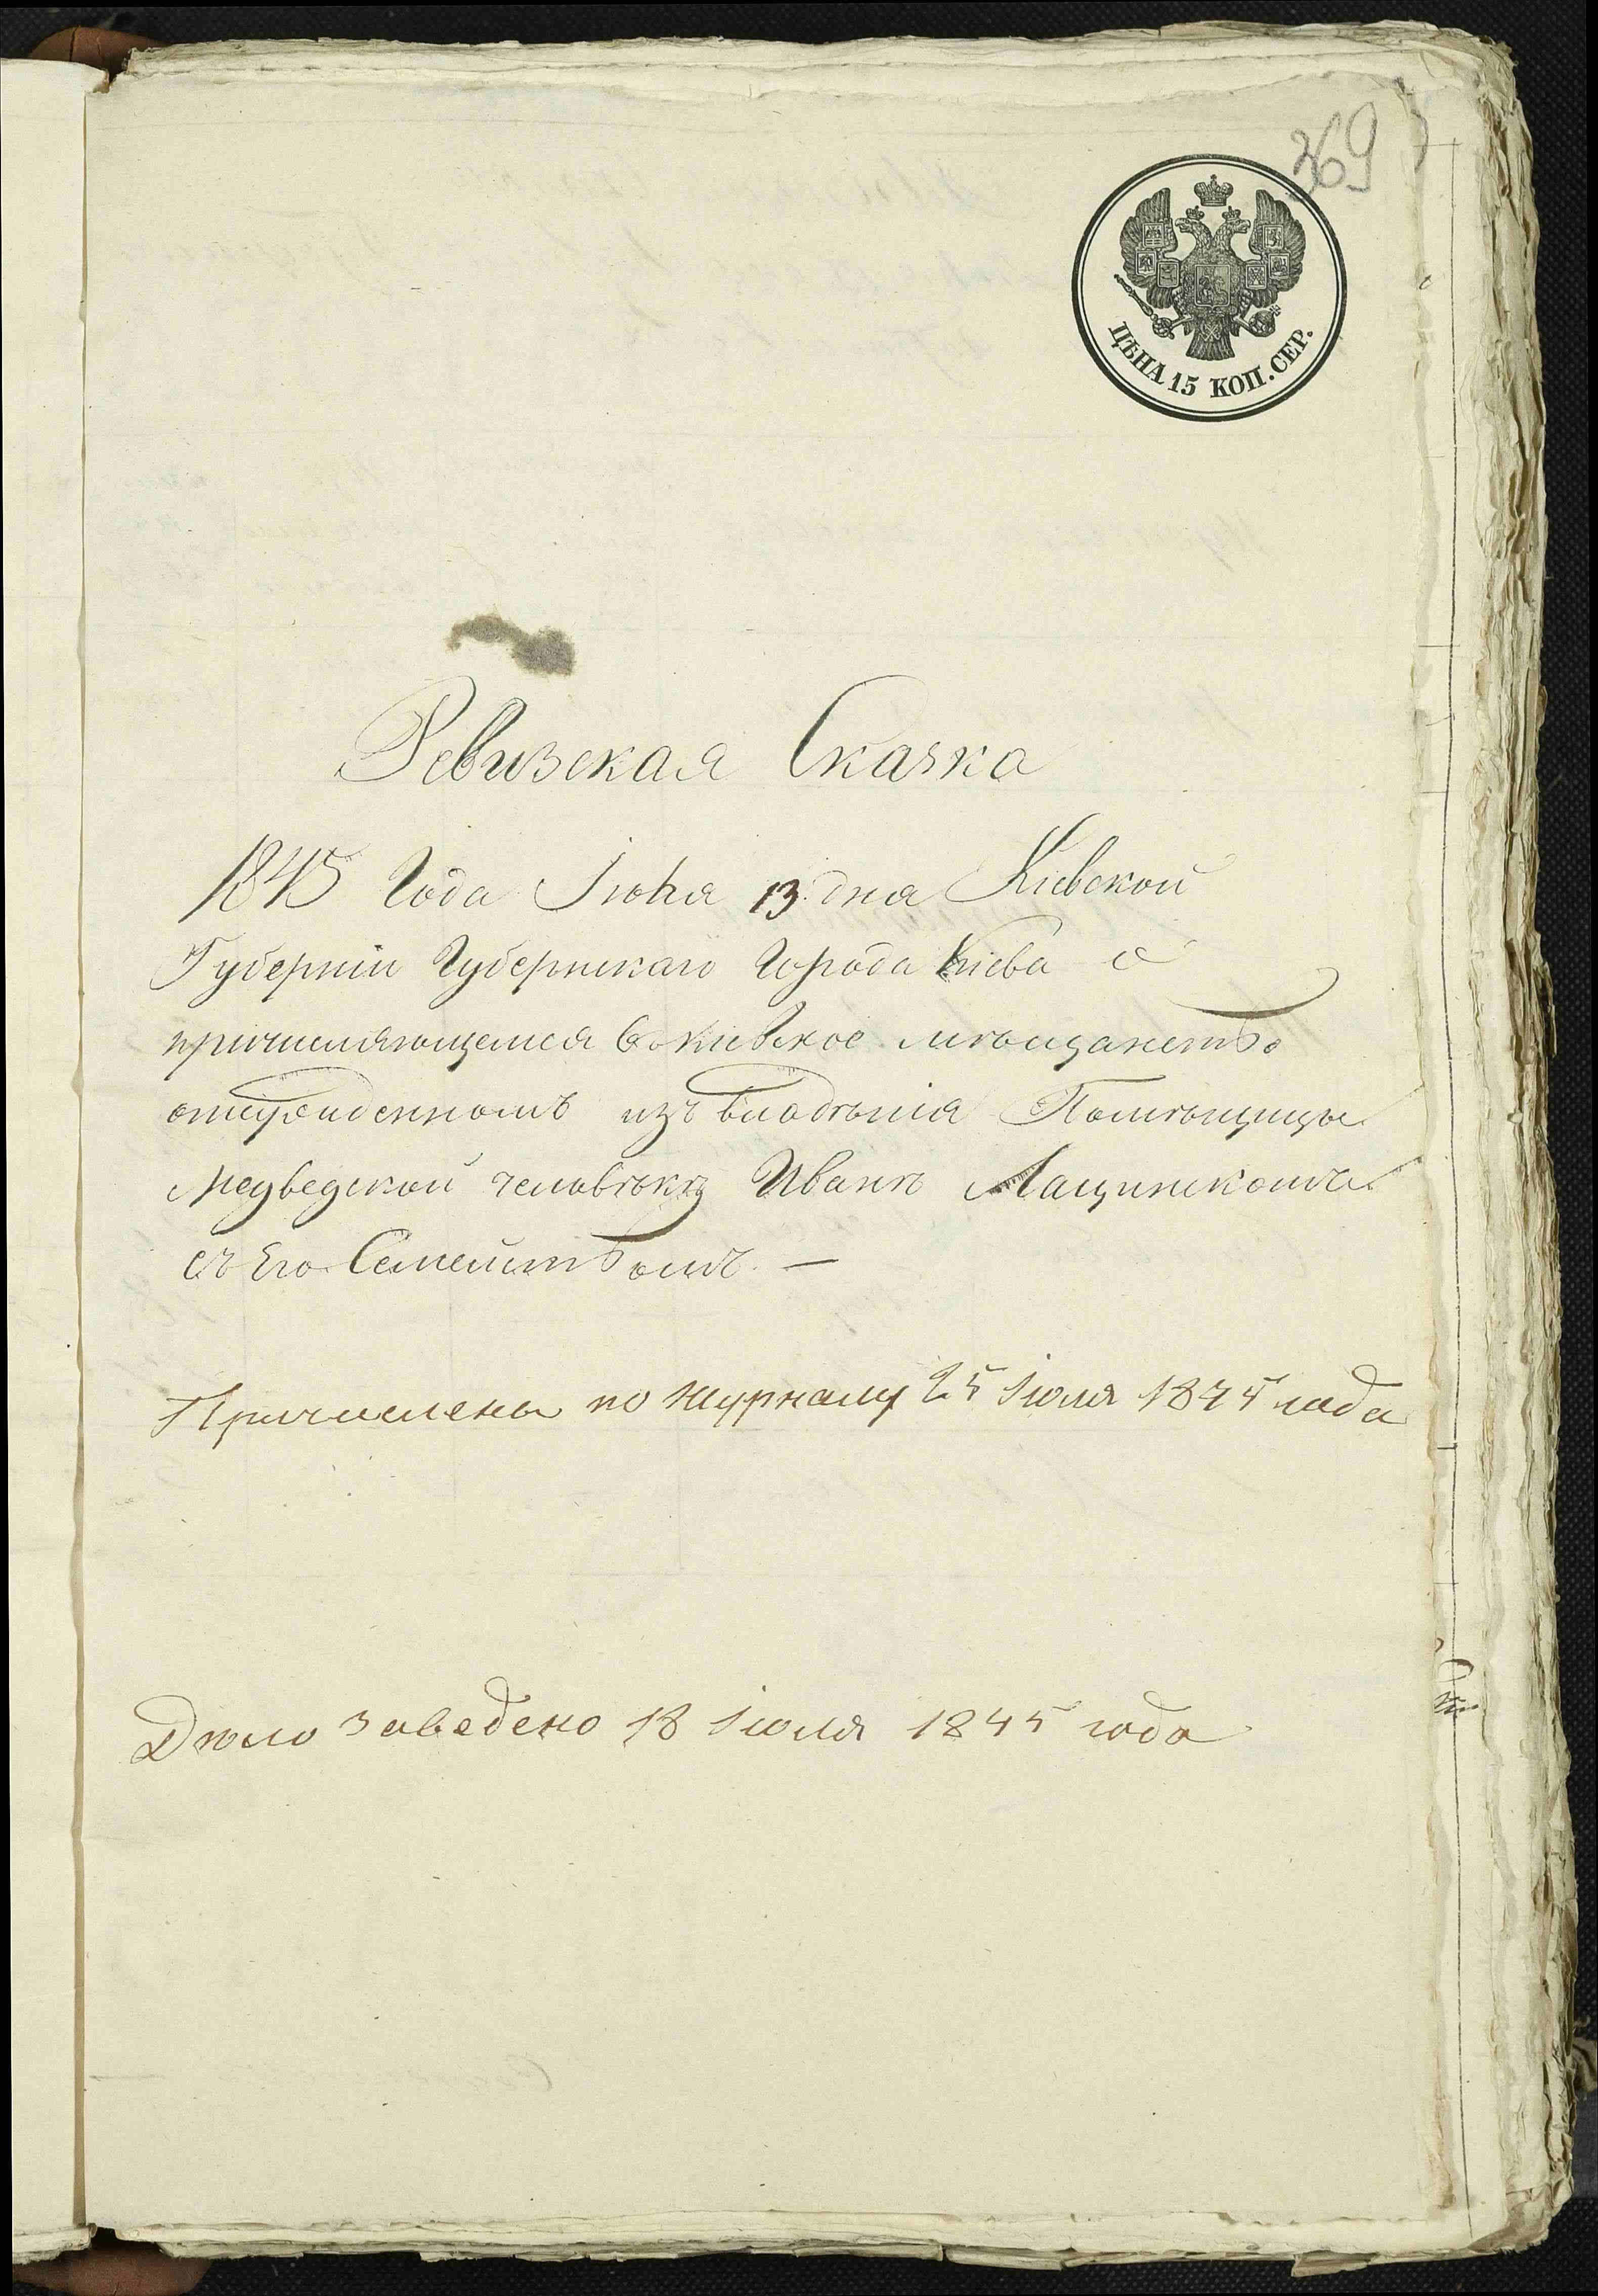 369
ЦѢНА 15 КОП. СЕР.
Ревизская Сказка
1845 Года Іюня 13 дня Кіевской
Губерніи Губернскаго Города Кіева о
причисляющемся въ Кіевское мѣщанство
отсужденномъ изъ владѣнія Помѣщицы
Медведской человѣкѣ Иванѣ Лащинскомъ
съ Его Семействомъ. —
Причислены по журналу 25 Іюля 1845 года
Дѣло заведено 18 Іюля 1845 года